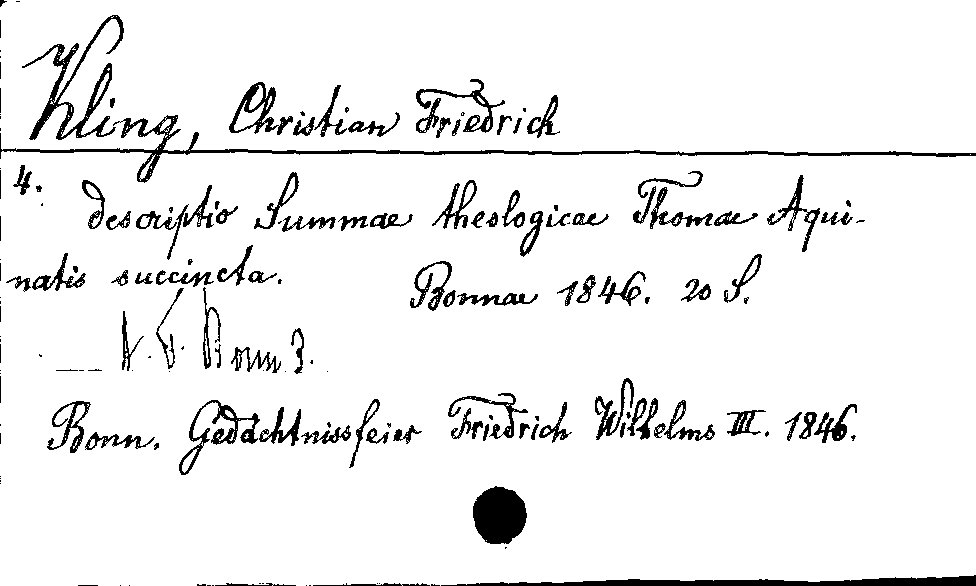 Kling, Christian Friedrich
4.
descriptio Summae theologicae Thomae Aqui-
natis succincta.
Bonnae 1846. 20 S.
Bonn 3.
Bonn. Gedächtnissfeier Friedrich Wilhelms III. 1846.